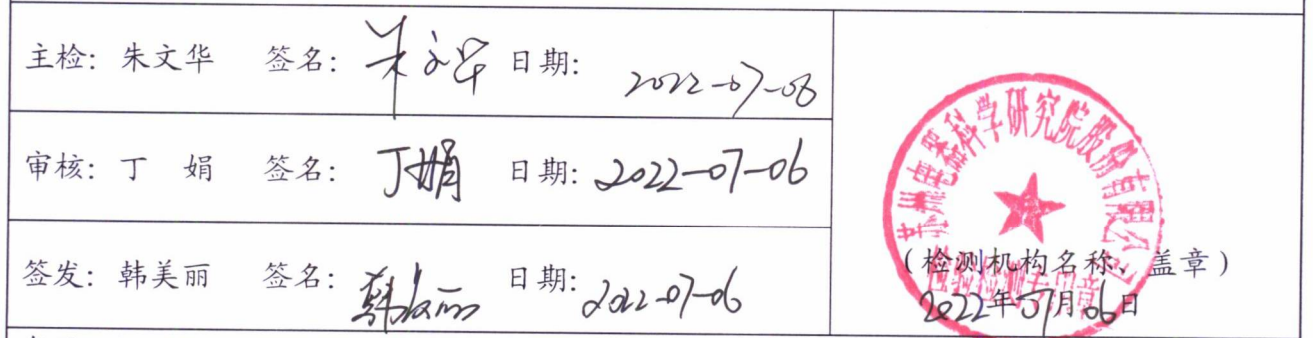 主检: 朱文华 签名: 朱文华 日期: 2022-07-06
审核: 丁 娟 签名: 丁娟 日期: 2022-07-06
签发: 韩美丽 签名: 韩美丽 日期: 2022-07-06
苏州电器科学研究院股份有限公司
(检测机构名称、盖章)
检验检测专用章
2022年07月06日